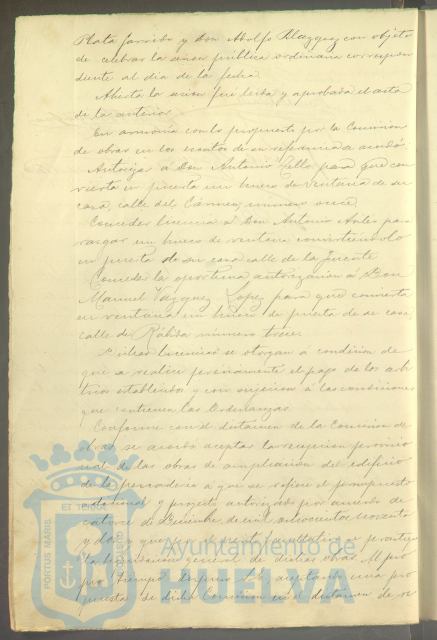 Plata Garrido y Don Adolfo Blazquez con objeto
de celebrar la sesion pública ordinaria correspon
diente al dia de la fecha.
Abierta la sesion fue leida y aprobada el acta
de la anterior.
En armonia con lo propuesto por la Comision
de obras en los asuntos de su referencia se acordó:
Autorizar á Don Antonio Tello para que con
vierta en puerta un hueco de ventana de su
casa calle del Cármen número
Conceder licencia á Don Antonio para
rasgar un hueco de ventana convirtiendolo
en puerta de su casa calle de la Fuente
Conceder la oportuna autorizacion á Don
Manuel Vazquez Lopez para que convierta
en ventana un hueco de puerta de su casa
calle de Rábida número trece.
Dichas licencias se otorgan á condicion de
que se realice previamente el pago de los arbi
trios establecidos y con sujecion á las condiciones
que contienen las Ordenanzas.
Conforme con el dictamen de la Comision de
obras se acordó aceptar la recepcion provisio
nal de las obras de ampliacion del edificio
de la pescaderia á que se refiere el presupuesto
adicional y proyecto autorizado por acuerdo de
catorce de Diciembre de mil ochocientos noventa
y dos y que por el perito facultativo se practique
la liquidacion general de dichas obras. Al pro
pio tiempo aceptando una pro
puesta de dicha Comision en el dictamen de re
PORTUS MARIS
ET TERRÆ
CUSTODIA
Ayuntamiento de
HUELVA